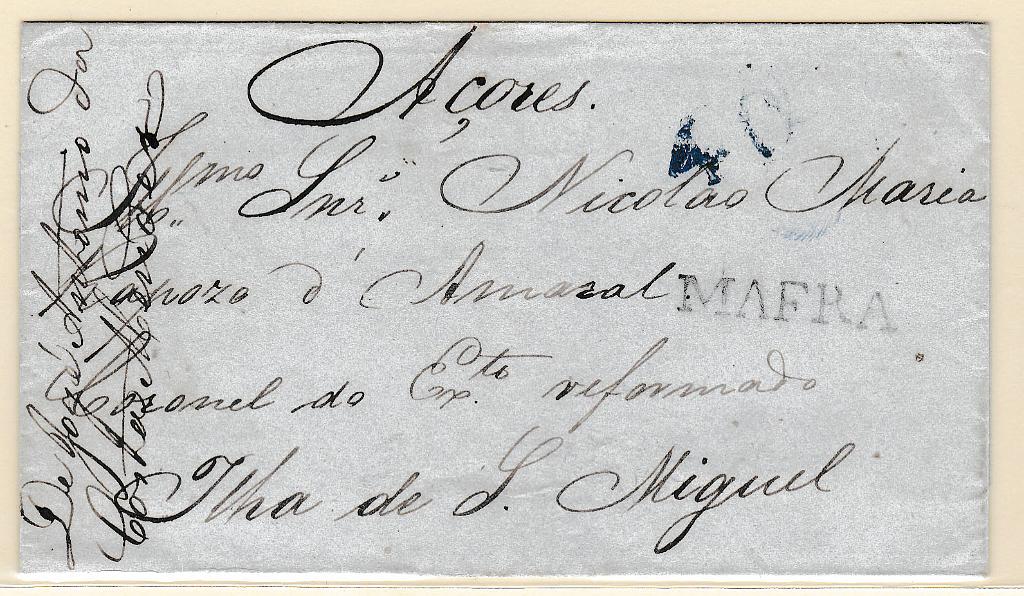 Açores.
40
Illmo Snr. Nicoláo Maria
Rapozo d'Amaral.
MAFRA
Coronel do Exto. reformado
Ilha de S. Miguel
De José Antonio da
Costa